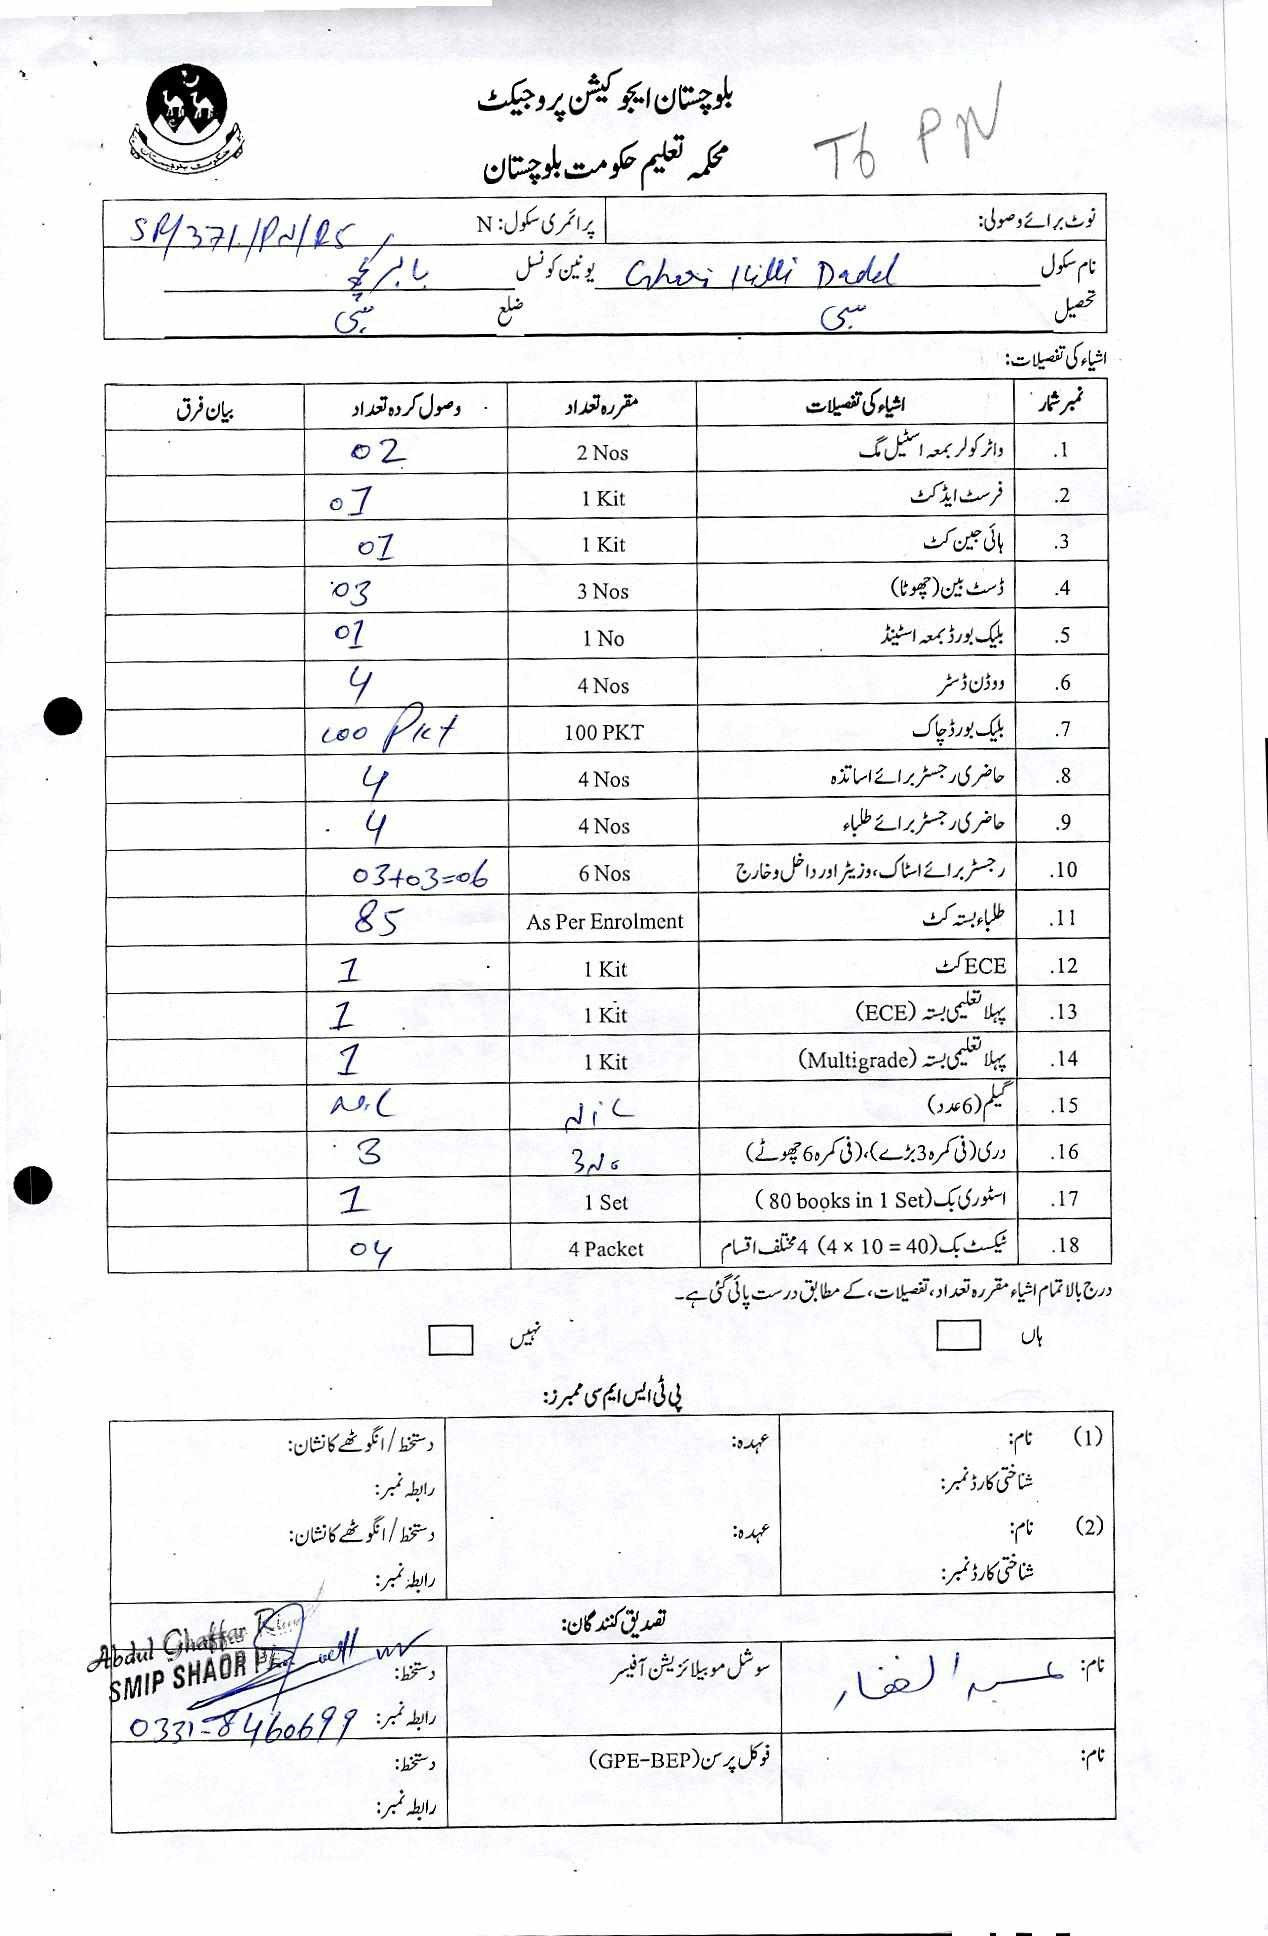 بلوچستان ایجوکیشن پروجیکٹ
محکمہ تعلیم حکومت بلوچستان
T6 PN
حکومت بلوچستان
نوٹ برائے وصولی: پرائمری سکول: N SP/371/PN/RS
نام سکول Killi Dadel یونین کونسل
تحصیل سبی ضلع سبی
اشیاء کی تفصیلات:
نمبر شمار اشیاء کی تفصیلات مقررہ تعداد وصول کردہ تعداد بیان فرق
.1 واٹر کولر بمعہ اسٹیل مگ 2 Nos 02
.2 فرسٹ ایڈ کٹ 1 Kit 01
.3 ہائی جین کٹ 1 Kit 01
.4 ڈسٹ بین (چھوٹا) 3 Nos 03
.5 بلیک بورڈ بمعہ اسٹینڈ 1 No 01
.6 ووڈن ڈسٹر 4 Nos 4
.7 بلیک بورڈ چاک 100 PKT 100 Pkt
.8 حاضری رجسٹر برائے اساتذہ 4 Nos 4
.9 حاضری رجسٹر برائے طلباء 4 Nos 4
.10 رجسٹر برائے اسٹاک، وزیٹر اور داخل و خارج 6 Nos 03+03=06
.11 طلباء بستہ کٹ As Per Enrolment 85
.12 ECE کٹ 1 Kit 1
.13 پہلا تعلیمی بستہ (ECE) 1 Kit 1
.14 پہلا تعلیمی بستہ (Multigrade) 1 Kit 1
.15 گیلم (6 عدد) NiL NiL
.16 دری (فی کمرہ 3 بڑے)، (فی کمرہ 6 چھوٹے) 3No 3
.17 اسٹوری بک (80 books in 1 Set) 1 Set 1
.18 ٹیکسٹ بک (4 × 10 = 40) 4 مختلف اقسام 4 Packet 04
درج بالا تمام اشیاء مقررہ تعداد، تفصیلات، کے مطابق درست پائی گئی ہے۔
ہاں نہیں
پی ٹی ایس ایم سی ممبرز:
(1) نام: عہدہ: دستخط/انگوٹھے کا نشان:
شناختی کارڈ نمبر: رابطہ نمبر:
(2) نام: عہدہ: دستخط/انگوٹھے کا نشان:
شناختی کارڈ نمبر: رابطہ نمبر:
تصدیق کنندگان:
نام: عبد الغفار سوشل موبیلائزیشن آفیسر دستخط:
Abdul Ghaffar
SMIP SHAOR
رابطہ نمبر: 0331-8460699
نام: فوکل پرسن (GPE-BEP) دستخط:
رابطہ نمبر: